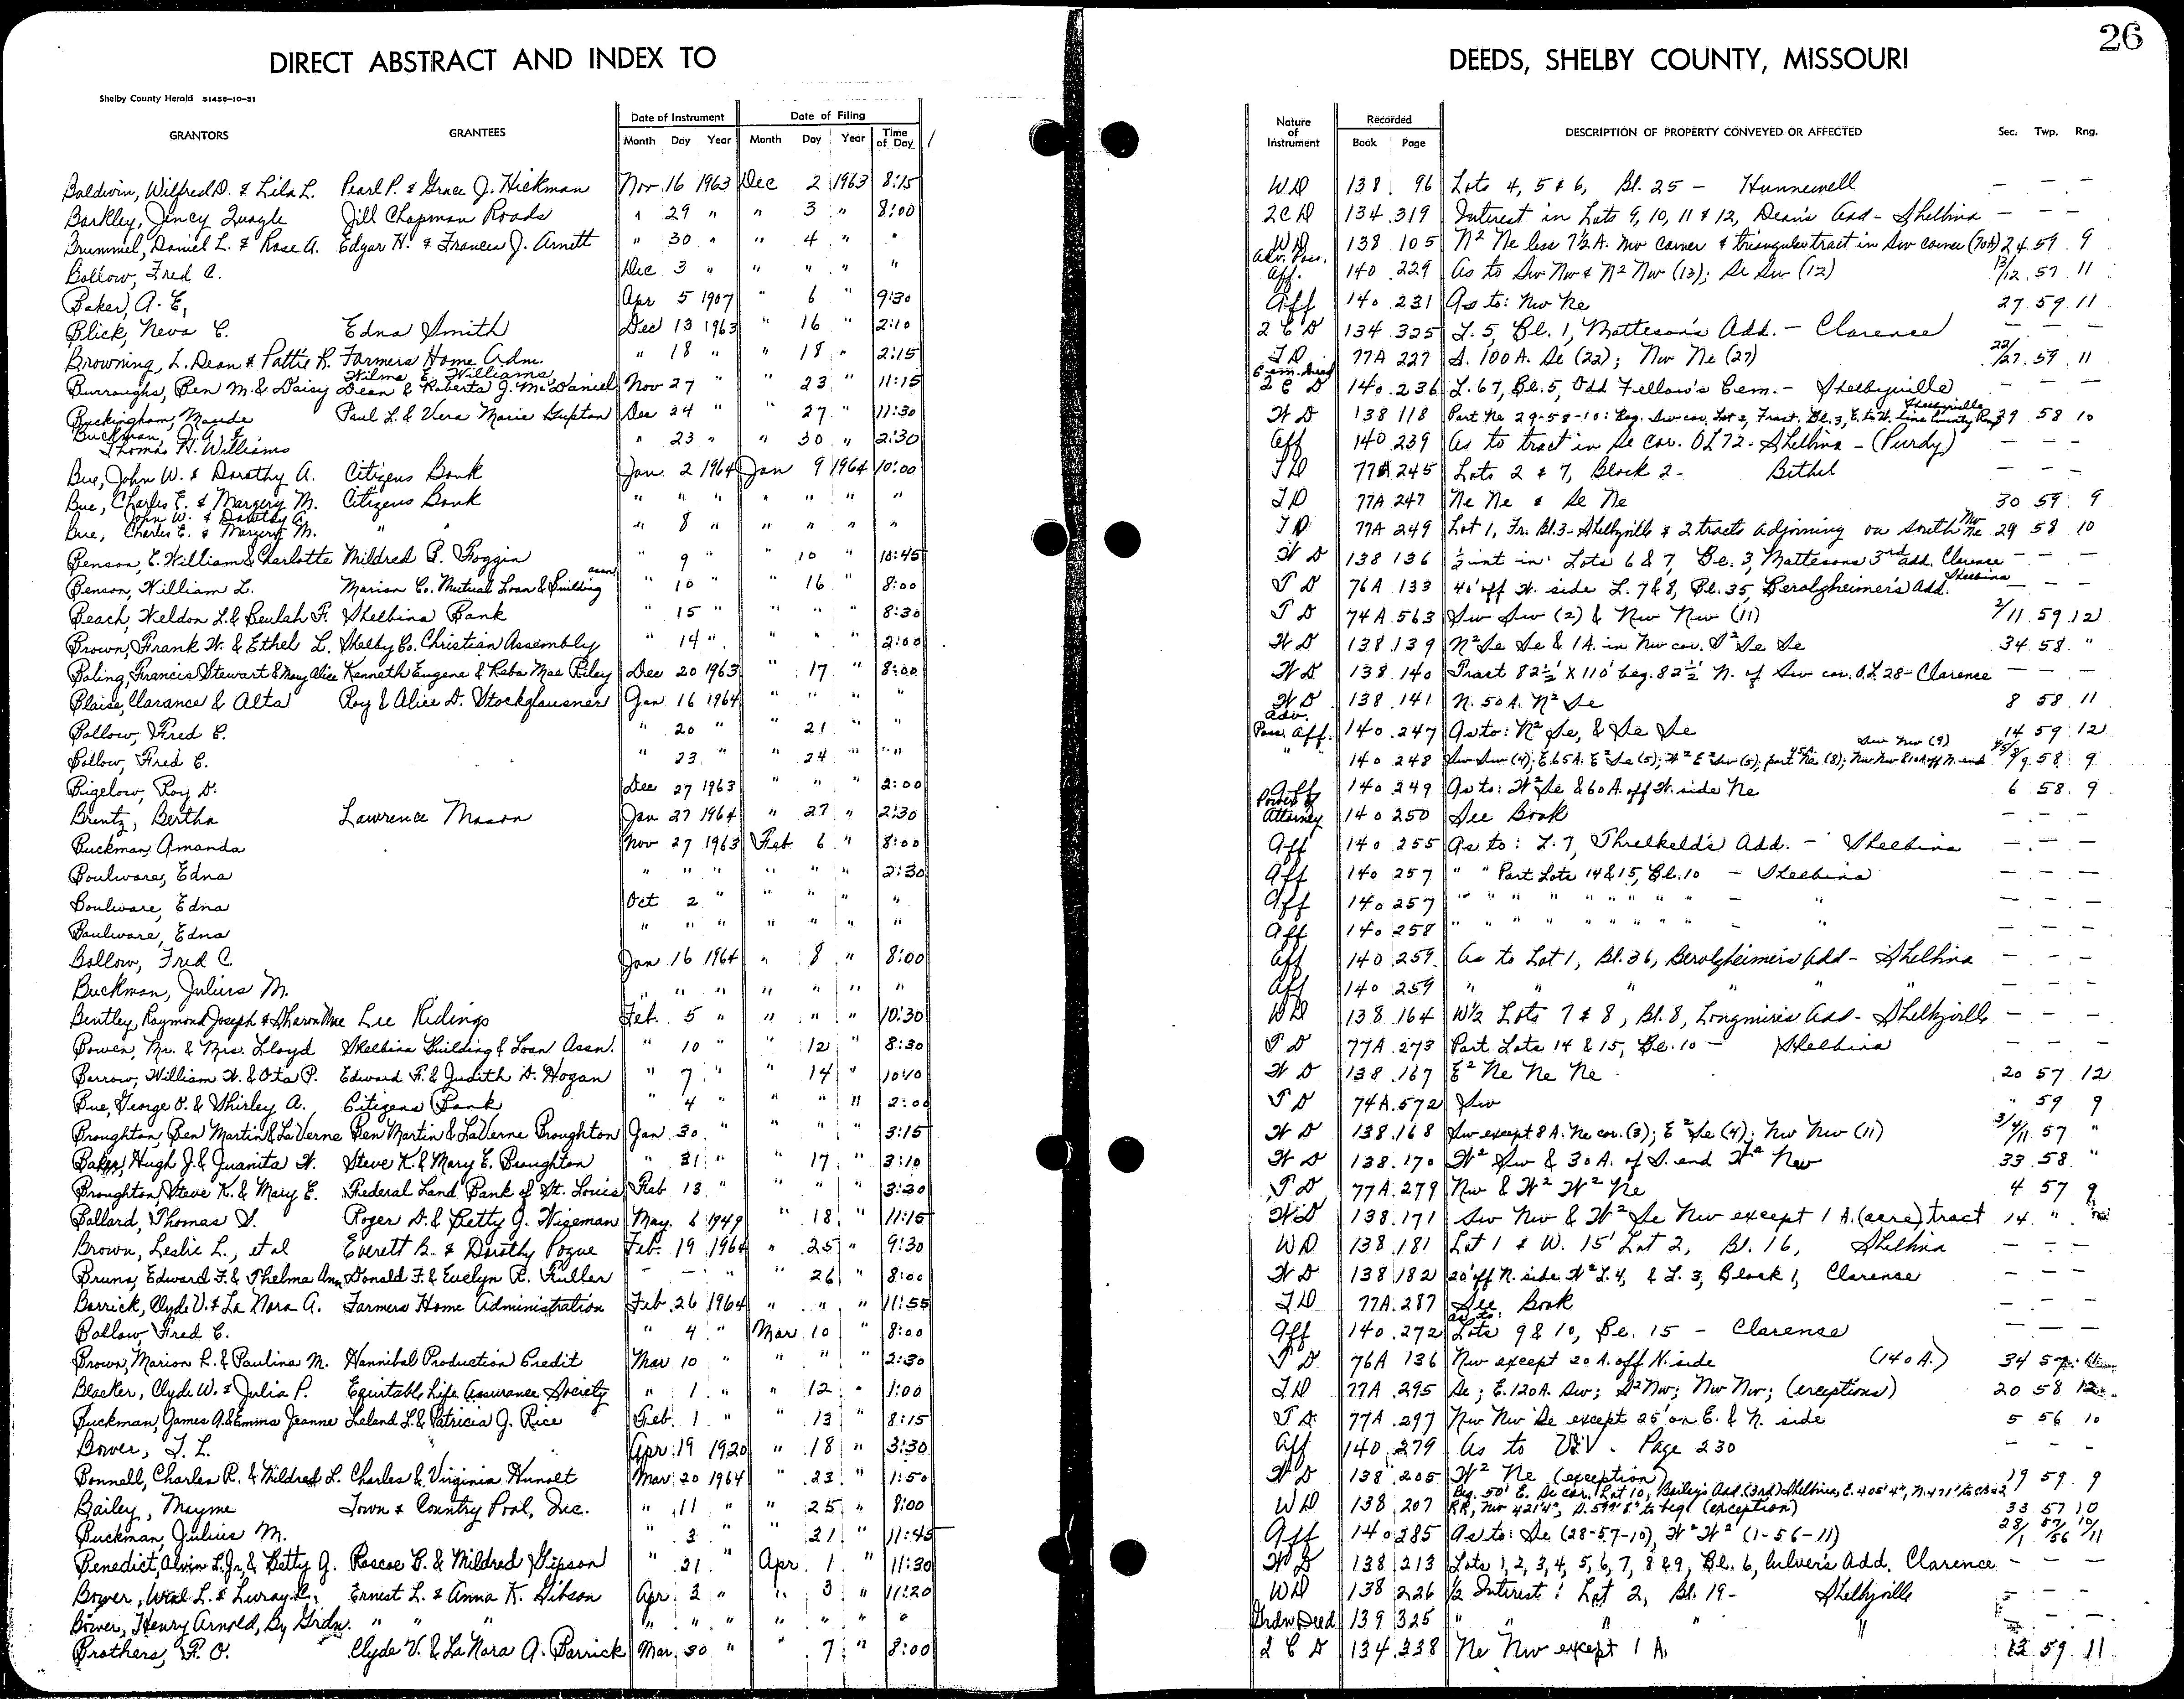 26
DIRECT ABSTRACT AND INDEX TO DEEDS, SHELBY COUNTY, MISSOURI
Shelby County Herald 51458-10-51
GRANTORS GRANTEES Date of Instrument Date of Filing Nature of Instrument Recorded DESCRIPTION OF PROPERTY CONVEYED OR AFFECTED Sec. Twp. Rng.
Month Day Year Month Day Year Time of Day Book Page
Baldwin, Wilfred D. & Lila L. Pearl P. & Grace J. Hickman Nov 16 1963 Dec 2 1963 8:15 WD 138 96 Lots 4, 5 & 6, Bl. 25 - Hunnewell — — —
Barkley, Jincy Quagle Jill Chapman Roads " 29 " " 3 " 8:00 2CD 134 319 Interest in Lots 9, 10, 11 & 12, Dean's Add - Shelbina — — —
Brummel, Daniel L. & Rose A. Edgar H. & Frances J. Arnett " 30 " " 4 " " WD 138 105 N² Ne less 7½ A. Nw corner & triangular tract in Sw corner (70A) 24 59 9
Ballow, Fred C. Dec 3 " " " " " Adv. Poss. Aff. 140 229 As to Sw Nw & N² Nw (13); Se Sw (12) 13/12 57 11
Baker, A. E. Apr 5 1907 " 6 " 9:30 Aff 140 231 As to: Nw Ne 27 59 11
Blick, Neva C. Edna Smith Dec 13 1963 " 16 " 2:10 2 C D 134 325 L. 5, Bl. 1, Matteson's Add. - Clarence — — —
Browning, L. Dean & Pattie R. Farmers Home Adm. " 18 " " 18 " 2:15 TD 77A 227 S. 100 A. Se (22); Nw Ne (27) 22/27 59 11
Burroughs, Ben M. & Daisy Wilma E. Williams Dean & Roberta J. McDaniel Nov 27 " " 23 " 11:15 Cem. Deed 2 C D 140 236 L. 67, Bl. 5, Odd Fellow's Cem. - Shelbyville — — —
Buckingham, Maude Paul L. & Vera Marie Gupton Dec 24 " " 27 " 11:30 W D 138 118 Part Ne 29-58-10: Beg. Sw cor. Lot 2, Fract. Bl. 3, E. to W. line County Rd Shelbyville 29 58 10
Buckman, Thomas H. Williams " 23 " " 30 " 2:30 Aff 140 239 As to tract in Se cor. OL 72 - Shelbina - (Purdy) — — —
Bue, John W. & Dorothy A. Citizens Bank Jan 2 1964 Jan 9 1964 10:00 TD 77A 245 Lots 2 & 7, Block 2 - Bethel — — —
Bue, Charles E. & Margery M. Citizens Bank " " " " " " " TD 77A 247 Ne Ne & Se Ne 30 59 9
Bue, John W. & Dorothy A. Charles E. & Margery M. " " " 8 " " " " " TD 77A 249 Lot 1, Fr. Bl. 3 - Shelbyville & 2 tracts adjoining on south Nw Ne 29 58 10
Benson, E. William & Charlotte Mildred P. Foggin " 9 " " 10 " 10:45 W D 138 136 ½ int in: Lots 6 & 7, Bl. 3, Mattesons 3rd add. Clarence — — —
Benson, William L. Marion Co. Mutual Loan & Building assn. " 10 " " 16 " 8:00 T D 76A 133 40' off W. side L. 7 & 8, Bl. 35, Berolzheimer's Add. Shelbina — — —
Beach, Weldon L. & Beulah F. Shelbina Bank " 15 " " " " 8:30 T D 74A 563 Sw Sw (2) & Nw Nw (11) 2/11 59 12
Brown, Frank W. & Ethel L. Shelby Co. Christian Assembly " 14 " " " " 2:00 W D 138 139 N² Se Se & 1 A. in Nw cor. S² Se Se 34 58 "
Boling, Francis Stewart & Mary Alice Kenneth Eugene & Reba Mae Riley Dec 20 1963 " 17 " 8:00 W D 138 140 Tract 82½' X 110' beg. 82½' N. of Sw cor. O.L. 28 - Clarence — — —
Blaise, Clarance & Alta Roy & Alice D. Stockglausner Jan 16 1964 " " " " W D 138 141 N. 50 A. N² Se 8 58 11
Ballow, Fred C. " 20 " " 21 " " Adv. Poss. Aff. 140 247 As to: N² Se, & Se Se 14 59 12
Ballow, Fred C. " 23 " " 24 " " " 140 248 Sw Sw (4); E. 65 A. E² Se (5); W² E² Sw (5); part Ne (8); Nw Nw & 10 A. off N. end Sw Nw (9) 58 9
Bigelow, Roy D. Dec 27 1963 " " " 2:00 Aff 140 249 As to: W² Se & 60 A. off W. side Ne 6 58 9
Brentz, Bertha Lawrence Mason Jan 27 1964 " 27 " 2:30 Power of Attorney 140 250 See Book — — —
Buckman, Amanda Nov 27 1963 Feb 6 " 8:00 Aff 140 255 As to: L. 7, Threlkeld's Add. - Shelbina — — —
Boulware, Edna " " " " " " 2:30 Aff 140 257 " " Part Lots 14 & 15, Bl. 10 - Shelbina — — —
Boulware, Edna Oct 2 " " " " " Aff 140 257 " " " " " " " " - " — — —
Boulware, Edna " " " " " " " Aff 140 258 " " " " " " " " - " — — —
Ballow, Fred C. Jan 16 1964 " 8 " 8:00 Aff 140 259 As to Lot 1, Bl. 36, Berolzheimer's Add - Shelbina — — —
Buckman, Julius M. " " " " " " " Aff 140 259 " " " " " " — — —
Bentley, Raymond Joseph & Sharon Mae Lee Ridings Feb. 5 " " " " 10:30 WD 138 164 W½ Lots 7 & 8, Bl. 8, Longmire's Add - Shelbyville — — —
Bowen, Mr. & Mrs. Lloyd Shelbina Building & Loan Assn. " 10 " " 12 " 8:30 T D 77A 273 Part Lots 14 & 15, Bl. 10 - Shelbina — — —
Barrow, William W. & Ota P. Edward F. & Judith D. Hogan " 7 " " 14 " 10:40 W D 138 167 E² Ne Ne Ne 20 57 12
Bue, George O. & Shirley A. Citizens Bank " 4 " " " " 2:00 T D 74A 572 Sw " 59 9
Broughton, Ben Martin & LaVerne Ben Martin & LaVerne Broughton Jan. 30 " " " " 3:15 W D 138 168 Sw except 8 A. Ne cor. (3); E² Se (4); Nw Nw (11) 3/4/11 57 "
Baker, Hugh J. & Juanita W. Steve K. & Mary E. Broughton " 31 " " 17 " 3:10 W D 138 170 W² Sw & 30 A. of S. end W² Nw 33 58 "
Broughton, Steve K. & Mary E. Federal Land Bank of St. Louis Feb 13 " " " " 3:30 T D 77A 279 Nw & W² W² Ne 4 57 9
Ballard, Thomas S. Roger D. & Betty J. Wiseman May 6 1949 " 18 " 11:15 W D 138 171 Sw Nw & W² Se Nw except 1 A. (acre) tract 14 "
Brown, Leslie L., et al Everett B. & Dorothy Pogue Feb. 19 1964 " 25 " 9:30 WD 138 181 Lot 1 & W. 15' Lot 2, Bl. 16, Shelbina — — —
Bruns, Edward F. & Thelma Ann Donald F. & Evelyn R. Fuller — — " " 26 " 8:00 W D 138 182 20' off N. side W² L. 4, & L. 3, Block 1, Clarence — — —
Barrick, Clyde V. & La Nora A. Farmers Home Administration Feb 26 1964 " " " 11:55 TD 77A 287 See Book — — —
Ballow, Fred C. " 4 " Mar 10 " 8:00 Aff 140 272 as to: Lots 9 & 10, Bl. 15 - Clarence — — —
Brown, Marion L. & Paulina M. Hannibal Production Credit Mar 10 " " " " 2:30 T D 76A 136 Nw except 20 A. off N. side (140 A.) 34 57
Blacker, Clyde W. & Julia P. Equitable Life Assurance Society " 1 " " 12 " 1:00 TD 77A 295 Se; E. 120 A. Sw; S² Nw; Nw Nw; (exceptions) 20 58 12
Buckman, James A. & Emma Jeanne Leland L. & Patricia J. Rice Feb. 1 " " 13 " 8:15 T D 77A 297 Nw Nw Se except 25' on E. & N. side 5 56 10
Bower, T. L. Apr 19 1920 " 18 " 3:30 Aff 140 279 As to Page 230 — — —
Bonnell, Charles R. & Mildred L. Charles & Virginia Hunolt Mar 20 1964 " 23 " 1:50 W D 138 205 W² Ne (exception) 19 59 9
Bailey, Mayme Town & Country Pool, Inc. " 11 " " 25 " 8:00 WD 138 207 Beg. 50' E. Se cor. Lot 10, Bailey's Add. (3rd) Shelbina, E. 405' 4", N. 471' to RR, Nw 421' 4", S. 599' 8" to beg. (exception) 33 57 10
Buckman, Julius M. " 3 " " 31 " 11:45 Aff 140 285 As to: Se (28-57-10), W² W² (1-56-11) 28/1 57/56 10/11
Benedict, Alvin L. Jr. & Betty J. Roscoe B. & Mildred Gipson " 21 Apr. 1 " 11:30 W D 138 213 Lots 1, 2, 3, 4, 5, 6, 7, 8 & 9, Bl. 6, Culver's Add. Clarence — — —
Bower, L. & Luray Ernest L. & Anna K. Gibson Apr. 3 " " 3 " 11:20 WD 138 226 ½ Interest: Lot 2, Bl. 19 - Shelbyville — — —
Bower, Henry Arnold, By Grdn. " " " " " " " " " " Grdn Deed 139 325 " " " " — —
Brothers, F. O. Clyde V. & La Nora A. Barrick Mar. 30 " " 7 " 8:00 2 C D 134 338 Ne Nw except 1 A. 59 11